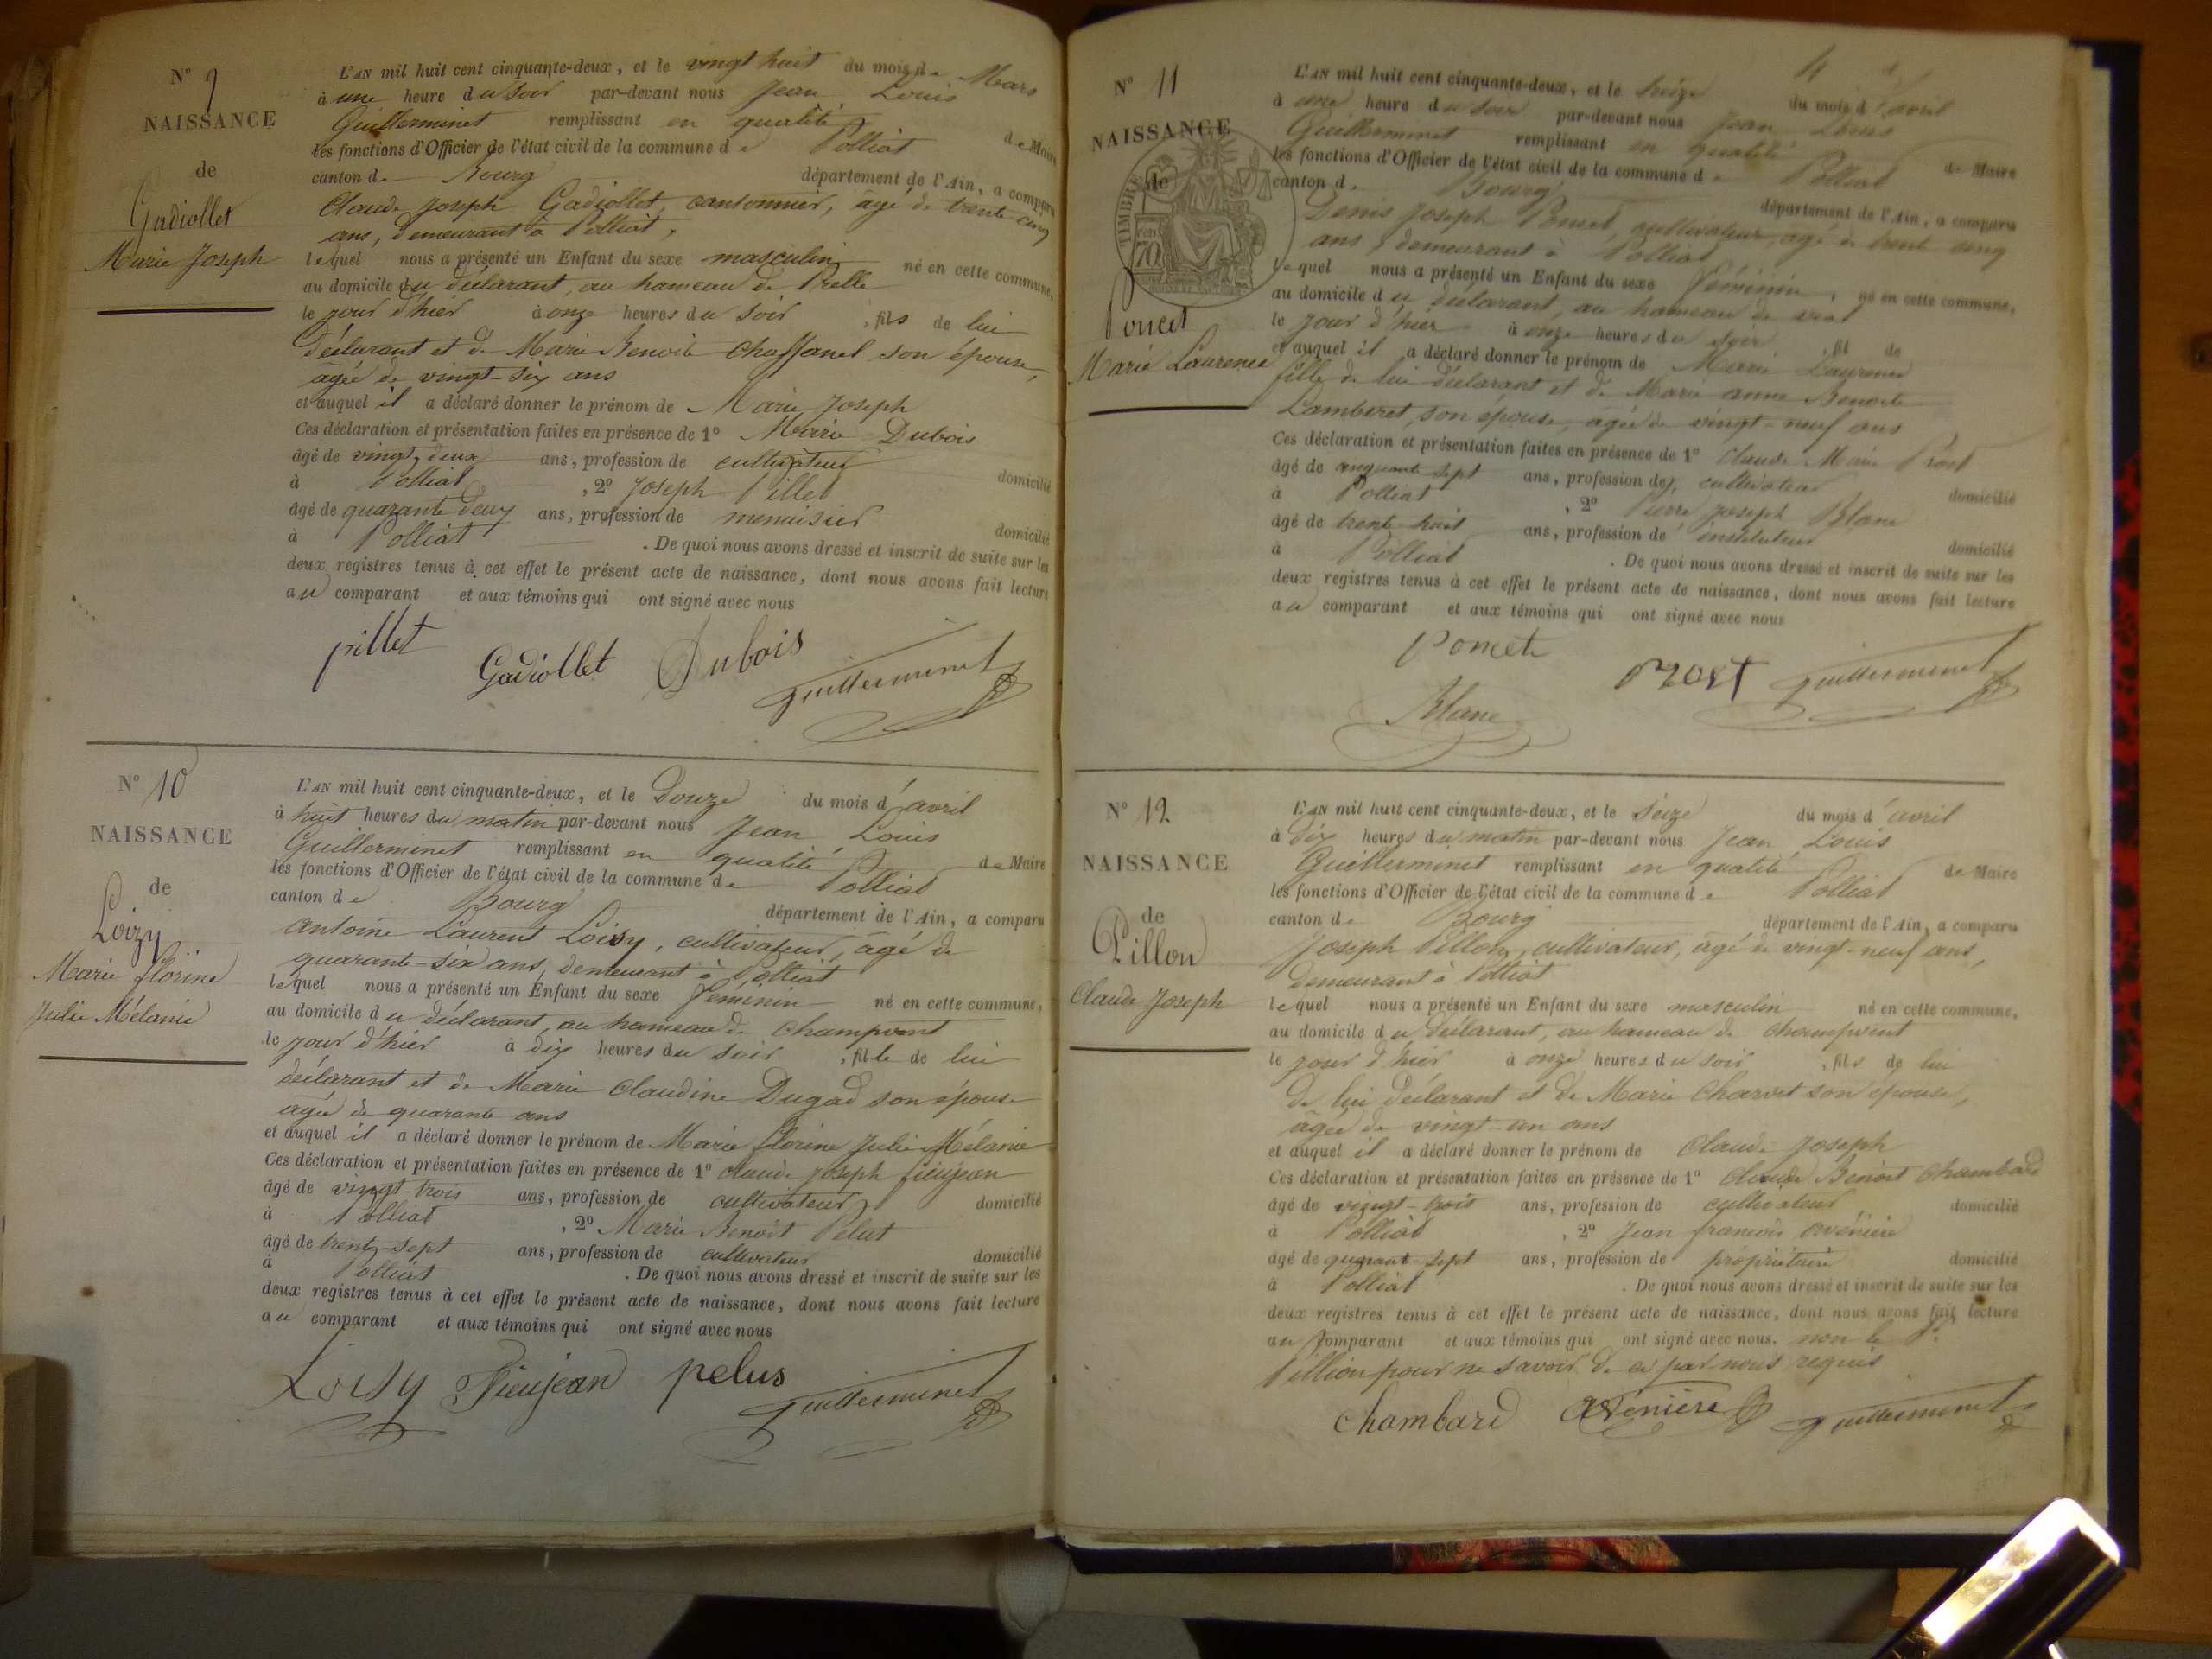 N° 9
NAISSANCE
de
Gadiollet
Marie Joseph
L'AN mil huit cent cinquante-deux, et le vingt huit du mois de Mars
à une heure du soir par-devant nous Jean Louis
Guillerminet remplissant en qualité de Maire
les fonctions d'Officier de l'état civil de la commune de Polliat
canton de Bourg département de l'Ain, a comparu
Claude Joseph Gadiollet, cantonnier, âgé de trente cinq
ans, demeurant à Polliat,
lequel nous a présenté un Enfant du sexe masculin né en cette commune,
au domicile du déclarant, au hameau de Presle
le jour d'hier à onze heures du soir, fils de lui
déclarant et de Marie Benoite Chaffanel son épouse,
âgée de vingt-six ans
et auquel il a déclaré donner le prénom de Marie Joseph
Ces déclaration et présentation faites en présence de 1° Marie Dubois
âgé de vingt deux ans, profession de cultivateur domicilié
à Polliat, 2° Joseph Pillet
âgé de quarante deux ans, profession de menuisier domicilié
à Polliat. De quoi nous avons dressé et inscrit de suite sur les
deux registres tenus à cet effet le présent acte de naissance, dont nous avons fait lecture
au comparant et aux témoins qui ont signé avec nous
pillet Gadiollet Dubois Guillerminet
N° 10
NAISSANCE
de
Loizy
Marie florine
Julie Mélanie
L'AN mil huit cent cinquante-deux, et le Douze du mois d'avril
à huit heures du matin par-devant nous Jean Louis
Guillerminet remplissant en qualité de Maire
les fonctions d'Officier de l'état civil de la commune de Polliat
canton de Bourg département de l'Ain, a comparu
antoine Laurent Loisy, cultivateur, âgé de
quarante-six ans, demeurant à Polliat
lequel nous a présenté un Enfant du sexe féminin né en cette commune,
au domicile du déclarant, au hameau de Champvent
le jour d'hier à dix heures du soir, fille de lui
déclarant et de Marie Claudine Dugad son épouse
âgée de quarante ans
et auquel il a déclaré donner le prénom de Marie florine Julie Mélanie
Ces déclaration et présentation faites en présence de 1° Claude Joseph fieujean
âgé de vingt-trois ans, profession de cultivateur domicilié
à Polliat, 2° Marie Benoît Pelut
âgé de trente-sept ans, profession de cultivateur domicilié
à Polliat. De quoi nous avons dressé et inscrit de suite sur les
deux registres tenus à cet effet le présent acte de naissance, dont nous avons fait lecture
au comparant et aux témoins qui ont signé avec nous
Loisy fieujean pelus Guillerminet
4
N° 11
NAISSANCE
de
TIMBRE
70
Poncet
Marie Laurence
L'AN mil huit cent cinquante-deux, et le treize du mois d'avril
à une heure du soir par-devant nous Jean Louis
Guillerminet remplissant en qualité de Maire
les fonctions d'Officier de l'état civil de la commune de Polliat
canton de Bourg département de l'Ain, a comparu
Denis Joseph Poncet, cultivateur, âgé de trente cinq
ans, demeurant à Polliat
lequel nous a présenté un Enfant du sexe féminin, né en cette commune,
au domicile du déclarant, au hameau de
le jour d'hier à onze heures du soir, fil de
et auquel il a déclaré donner le prénom de Marie Laurence
fille de lui déclarant et de Marie anne Benoite
Lamberet, son épouse, âgée de vingt-neuf ans
Ces déclaration et présentation faites en présence de 1° Claude Marie Prost
âgé de cinquante sept ans, profession de cultivateur domicilié
à Polliat, 2° Pierre Joseph Blanc
âgé de trente huit ans, profession de instituteur domicilié
à Polliat. De quoi nous avons dressé et inscrit de suite sur les
deux registres tenus à cet effet le présent acte de naissance, dont nous avons fait lecture
au comparant et aux témoins qui ont signé avec nous
Poncet prost Guillerminet
Blanc
N° 12
NAISSANCE
de
Pillon
Claude Joseph
L'AN mil huit cent cinquante-deux, et le seize du mois d'avril
à dix heures du matin par-devant nous Jean Louis
Guillerminet remplissant en qualité de Maire
les fonctions d'Officier de l'état civil de la commune de Polliat
canton de Bourg département de l'Ain, a comparu
Joseph Pillon, cultivateur, âgé de vingt-neuf ans,
demeurant à Polliat
lequel nous a présenté un Enfant du sexe masculin né en cette commune,
au domicile du déclarant, au hameau de Champvent
le jour d'hier à onze heures du soir, fils de lui
de lui déclarant et de Marie Charvet son épouse,
âgée de vingt-un ans
et auquel il a déclaré donner le prénom de Claude Joseph
Ces déclaration et présentation faites en présence de 1° Claude Benoit Chambard
âgé de vingt-trois ans, profession de cultivateur domicilié
à Polliat, 2° Jean francois avenière
âgé de quarante-sept ans, profession de propriétaire domicilié
à Polliat. De quoi nous avons dressé et inscrit de suite sur les
deux registres tenus à cet effet le présent acte de naissance, dont nous avons fait lecture
au comparant et aux témoins qui ont signé avec nous. non le Sr.
Pillion pour ne savoir de ce par nous requis
Chambard avenière Guillerminet